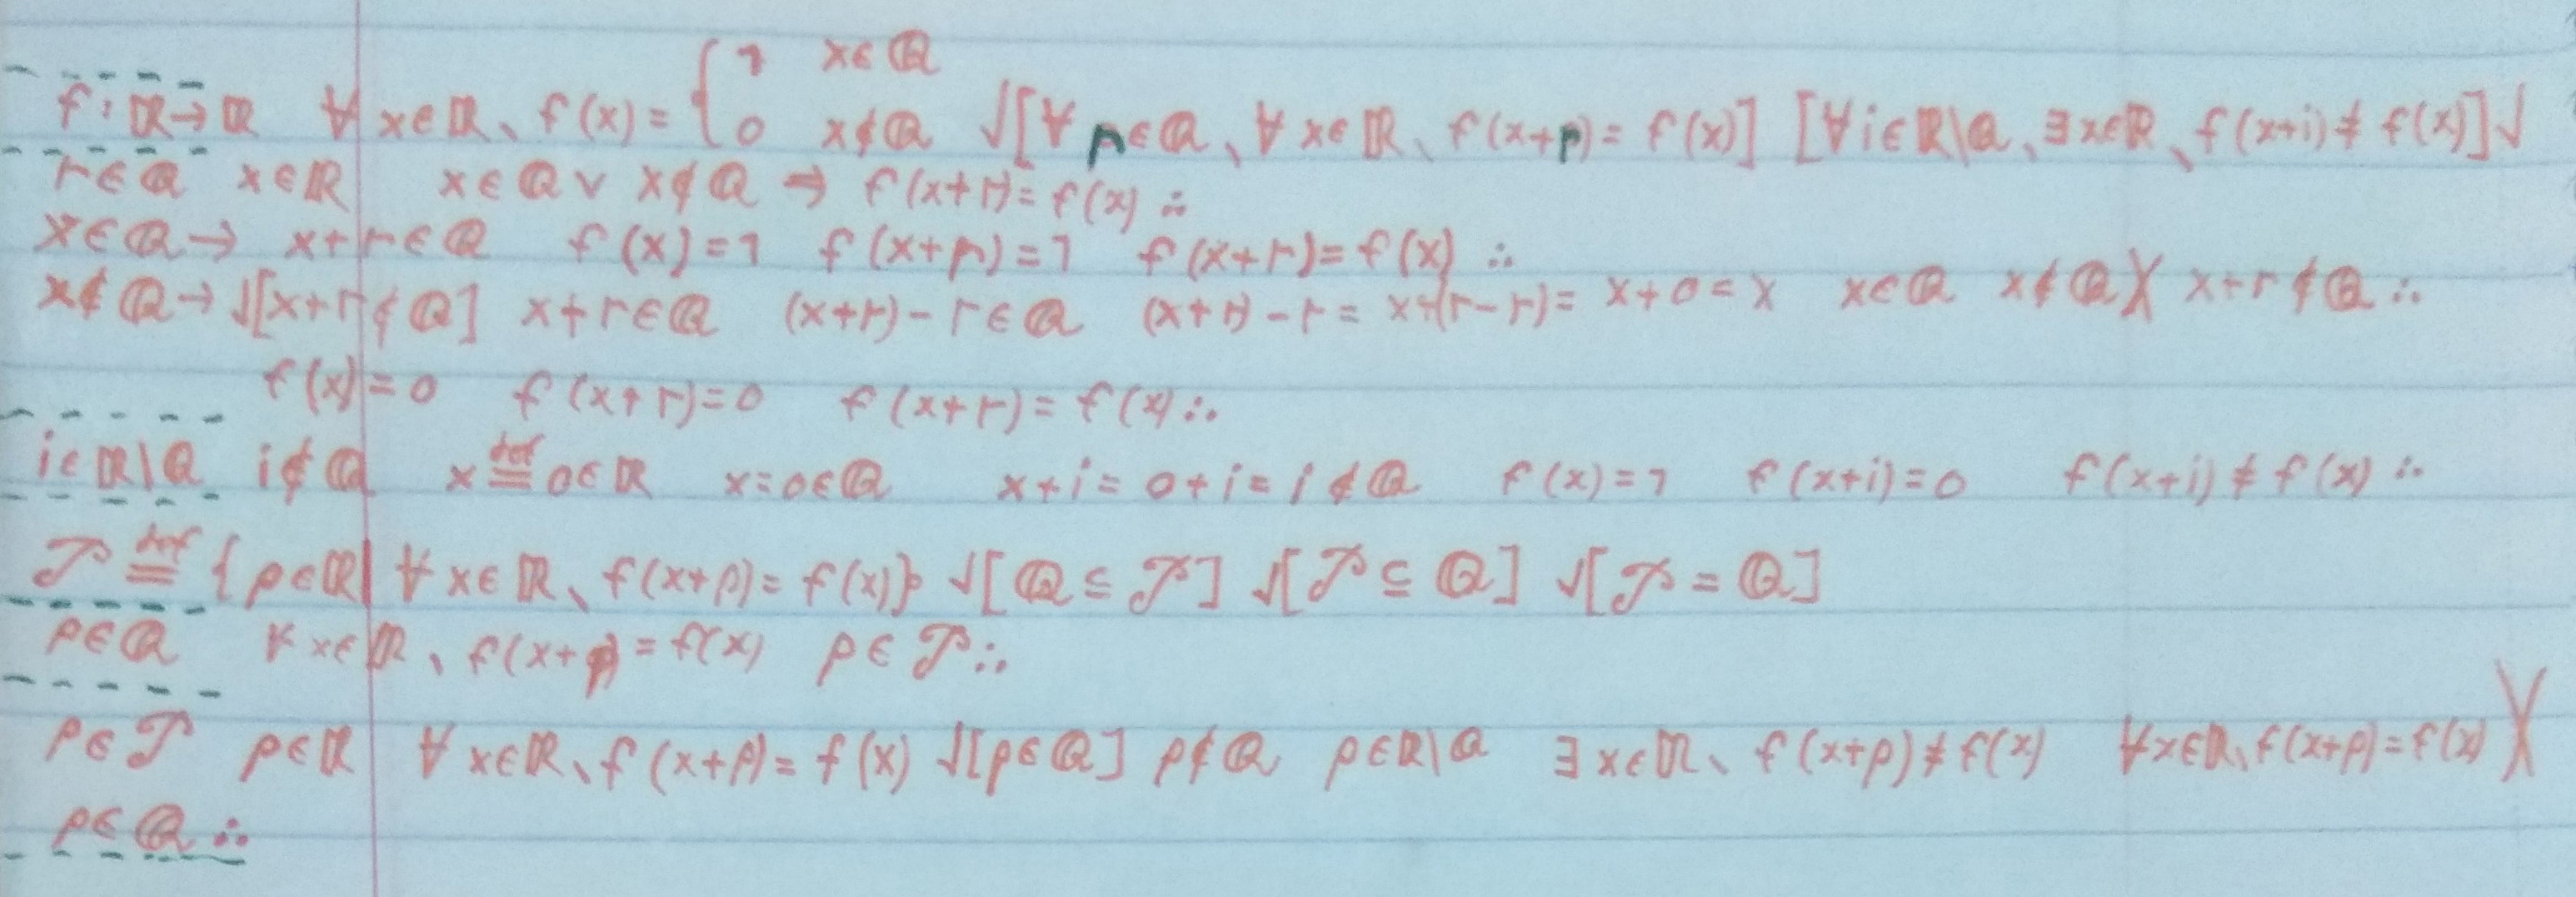 f:ℝ→ℝ ∀x∈ℝ、f(x)={1 x∈ℚ 0 x∉ℚ √[∀r∈ℚ、∀x∈ℝ、f(x+r)=f(x)] [∀i∈ℝ\ℚ、∃x∈ℝ、f(x+i)≠f(x)]√
r∈ℚ x∈ℝ x∈ℚ∨x∉ℚ ⇒ f(x+r)=f(x)∴
x∈ℚ→ x+r∈ℚ f(x)=1 f(x+r)=1 f(x+r)=f(x)∴
x∉ℚ→√[x+r∉ℚ] x+r∈ℚ (x+r)-r∈ℚ (x+r)-r=x+(r-r)=x+0=x x∈ℚ x∉ℚ╳ x+r∉ℚ∴
f(x)=0 f(x+r)=0 f(x+r)=f(x)∴
i∈ℝ\ℚ i∉ℚ x≝0∈ℝ x=0∈ℚ x+i=0+i=i∉ℚ f(x)=1 f(x+i)=0 f(x+i)≠f(x)∴
𝒫≝{p∈ℝ|∀x∈ℝ、f(x+p)=f(x)} √[ℚ⊆𝒫] √[𝒫⊆ℚ] √[𝒫=ℚ]
p∈ℚ ∀x∈ℝ、f(x+p)=f(x) p∈𝒫∴
p∈𝒫 p∈ℝ ∀x∈ℝ、f(x+p)=f(x) √[p∈ℚ] p∉ℚ p∈ℝ\ℚ ∃x∈ℝ、f(x+p)≠f(x) ∀x∈ℝ、f(x+p)=f(x)╳
p∈ℚ∴